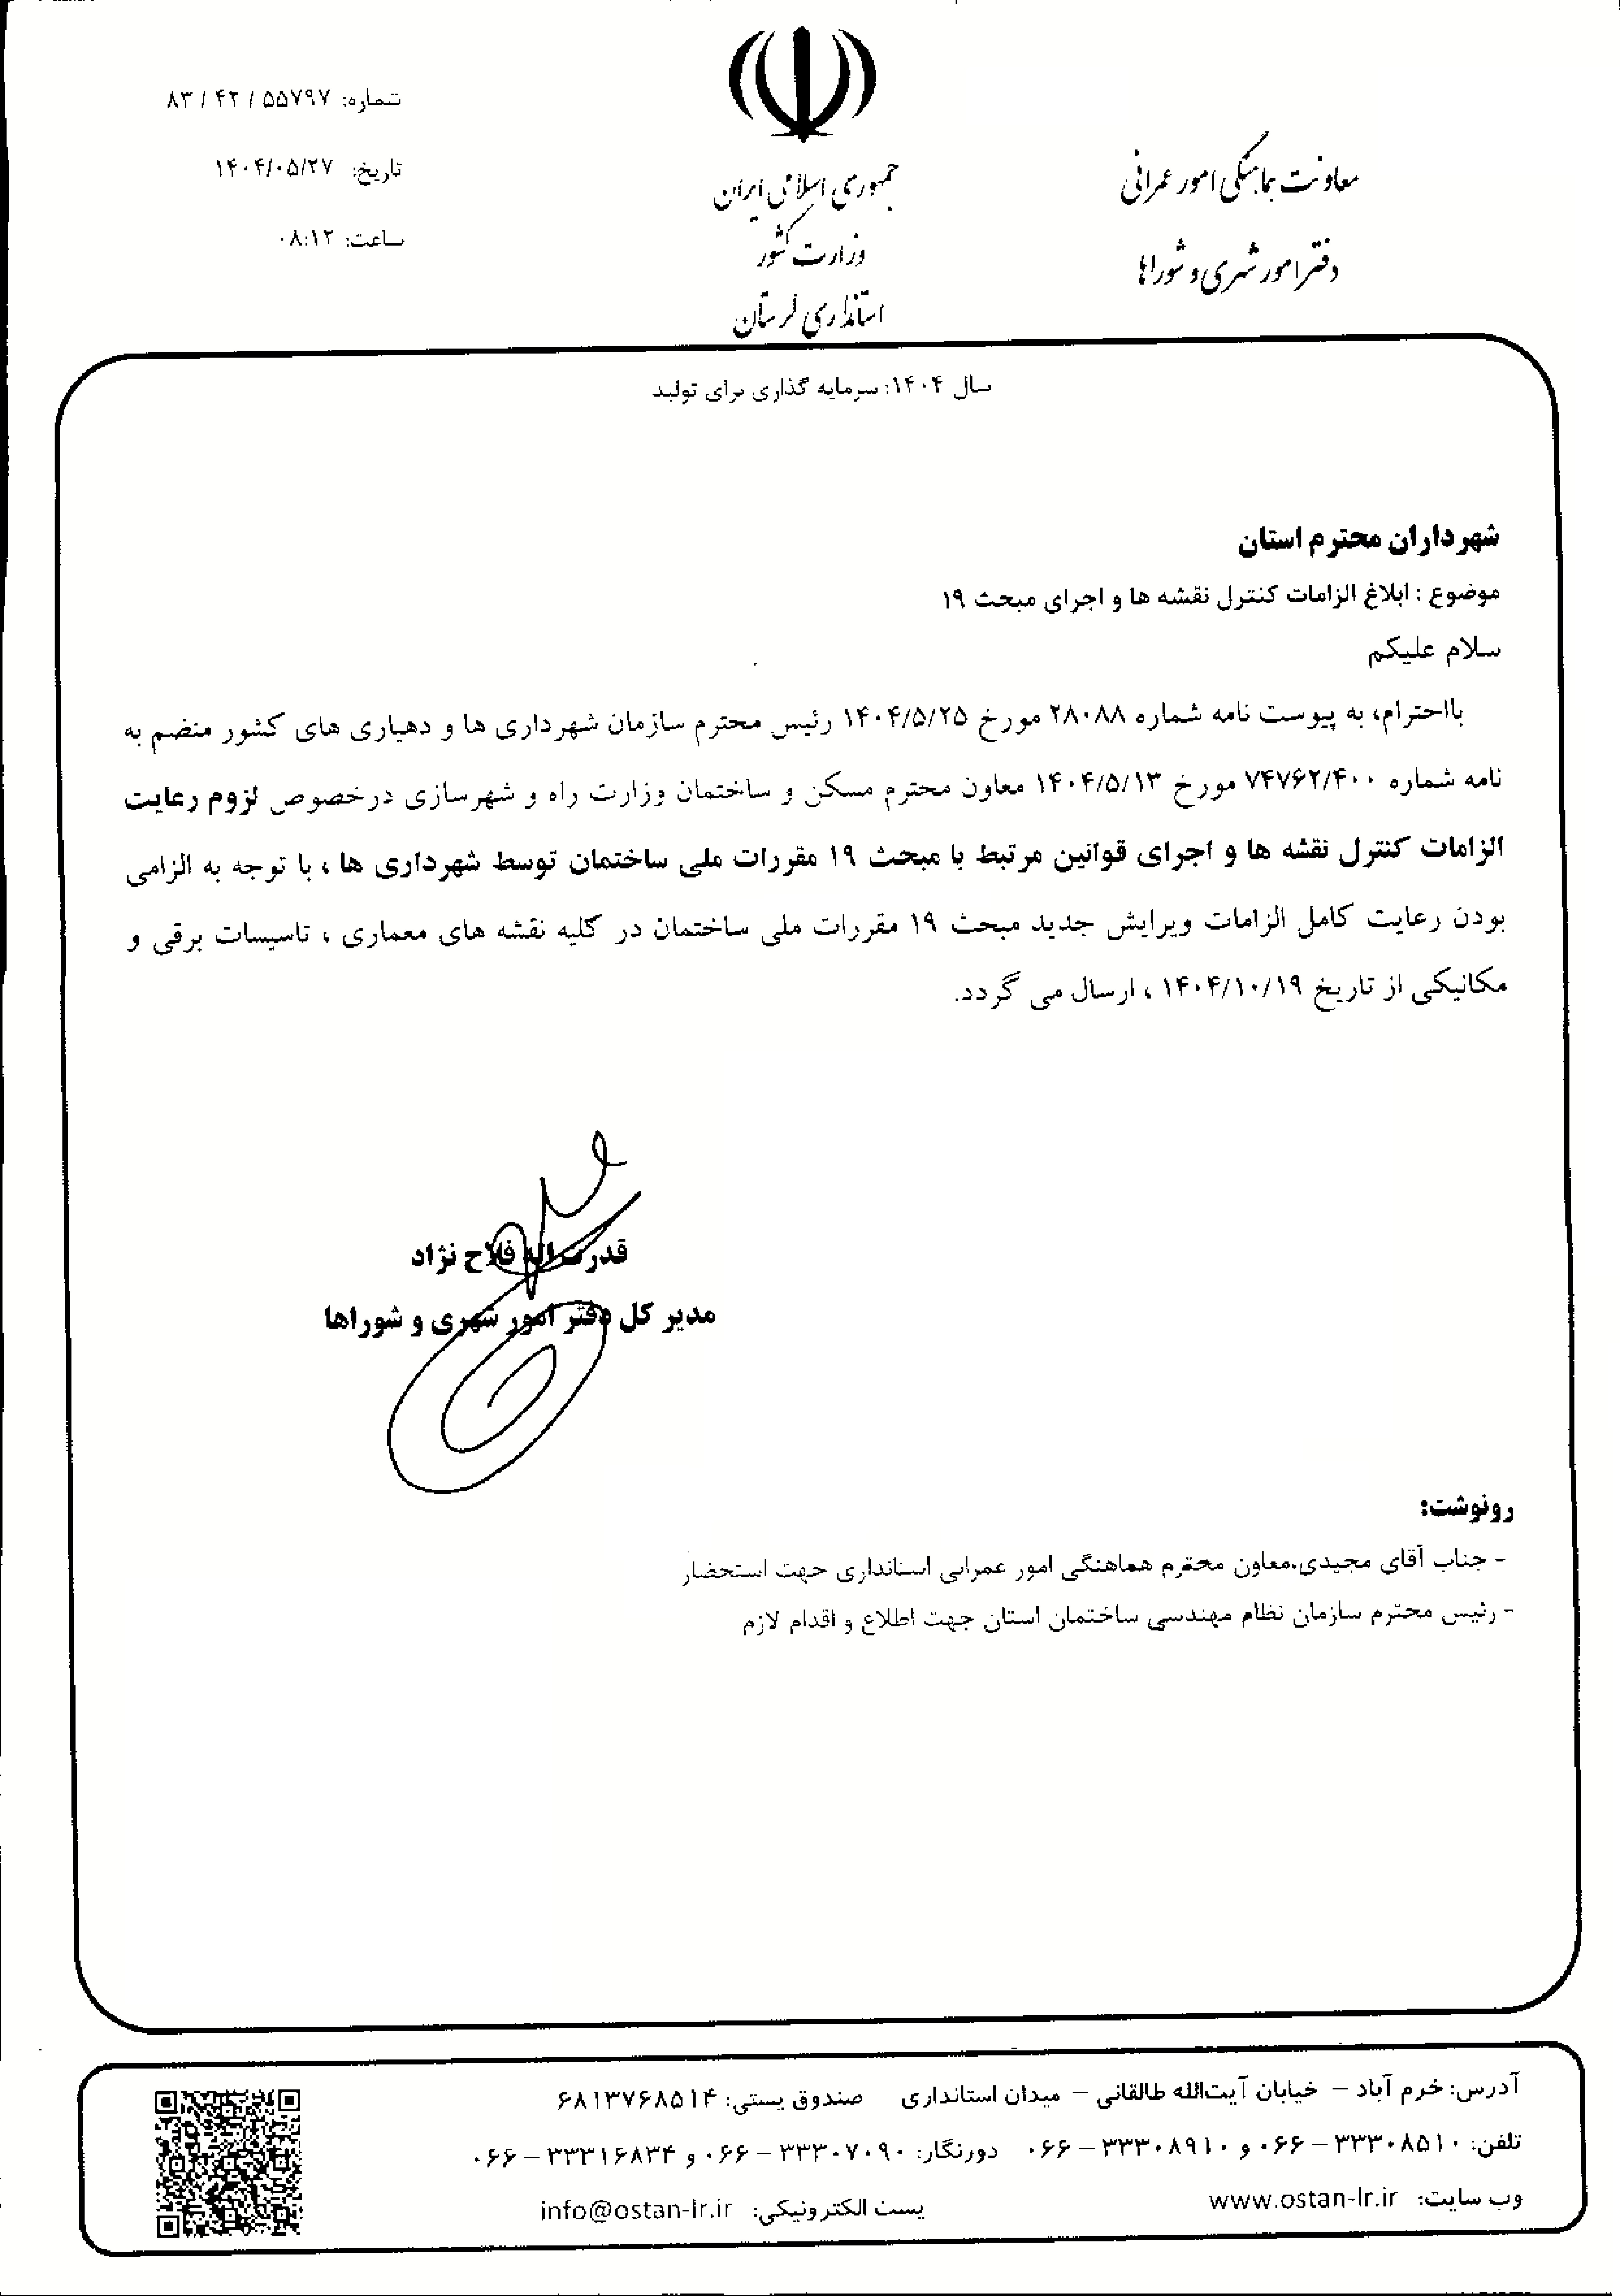 شماره: ۵۵۷۹۷ / ۴۲ / ۸۳
تاریخ: ۱۴۰۴/۰۵/۲۷
ساعت: ۰۸:۱۲
جمهوری اسلامی ایران
وزارت کشور
استانداری لرستان
معاونت هماهنگی امور عمرانی
دفتر امور شهری و شوراها
سال ۱۴۰۴: سرمایه گذاری برای تولید
شهرداران محترم استان
موضوع : ابلاغ الزامات کنترل نقشه ها و اجرای مبحث ۱۹
سلام علیکم
بااحترام، به پیوست نامه شماره ۲۸۰۸۸ مورخ ۱۴۰۴/۵/۲۵ رئیس محترم سازمان شهرداری ها و دهیاری های کشور منضم به
نامه شماره ۷۴۷۶۲/۴۰۰ مورخ ۱۴۰۴/۵/۱۳ معاون محترم مسکن و ساختمان وزارت راه و شهرسازی درخصوص لزوم رعایت
الزامات کنترل نقشه ها و اجرای قوانین مرتبط با مبحث ۱۹ مقررات ملی ساختمان توسط شهرداری ها ، با توجه به الزامی
بودن رعایت کامل الزامات ویرایش جدید مبحث ۱۹ مقررات ملی ساختمان در کلیه نقشه های معماری ، تاسیسات برقی و
مکانیکی از تاریخ ۱۴۰۴/۱۰/۱۹ ، ارسال می گردد.
قدرت اله فلاح نژاد
مدیر کل دفتر امور شهری و شوراها
رونوشت:
- جناب آقای مجیدی.معاون محترم هماهنگی امور عمرانی استانداری جهت استحضار
- رئیس محترم سازمان نظام مهندسی ساختمان استان جهت اطلاع و اقدام لازم
آدرس: خرم آباد – خیابان آیت‌الله طالقانی – میدان استانداری صندوق پستی: ۶۸۱۳۷۶۸۵۱۴
تلفن: ۳۳۳۰۸۵۱۰ – ۰۶۶ و ۳۳۳۰۸۹۱۰ – ۰۶۶ دورنگار: ۳۳۳۰۷۰۹۰ – ۰۶۶ و ۳۳۳۱۶۸۳۴ – ۰۶۶
وب سایت: www.ostan-lr.ir پست الکترونیکی: info@ostan-lr.ir